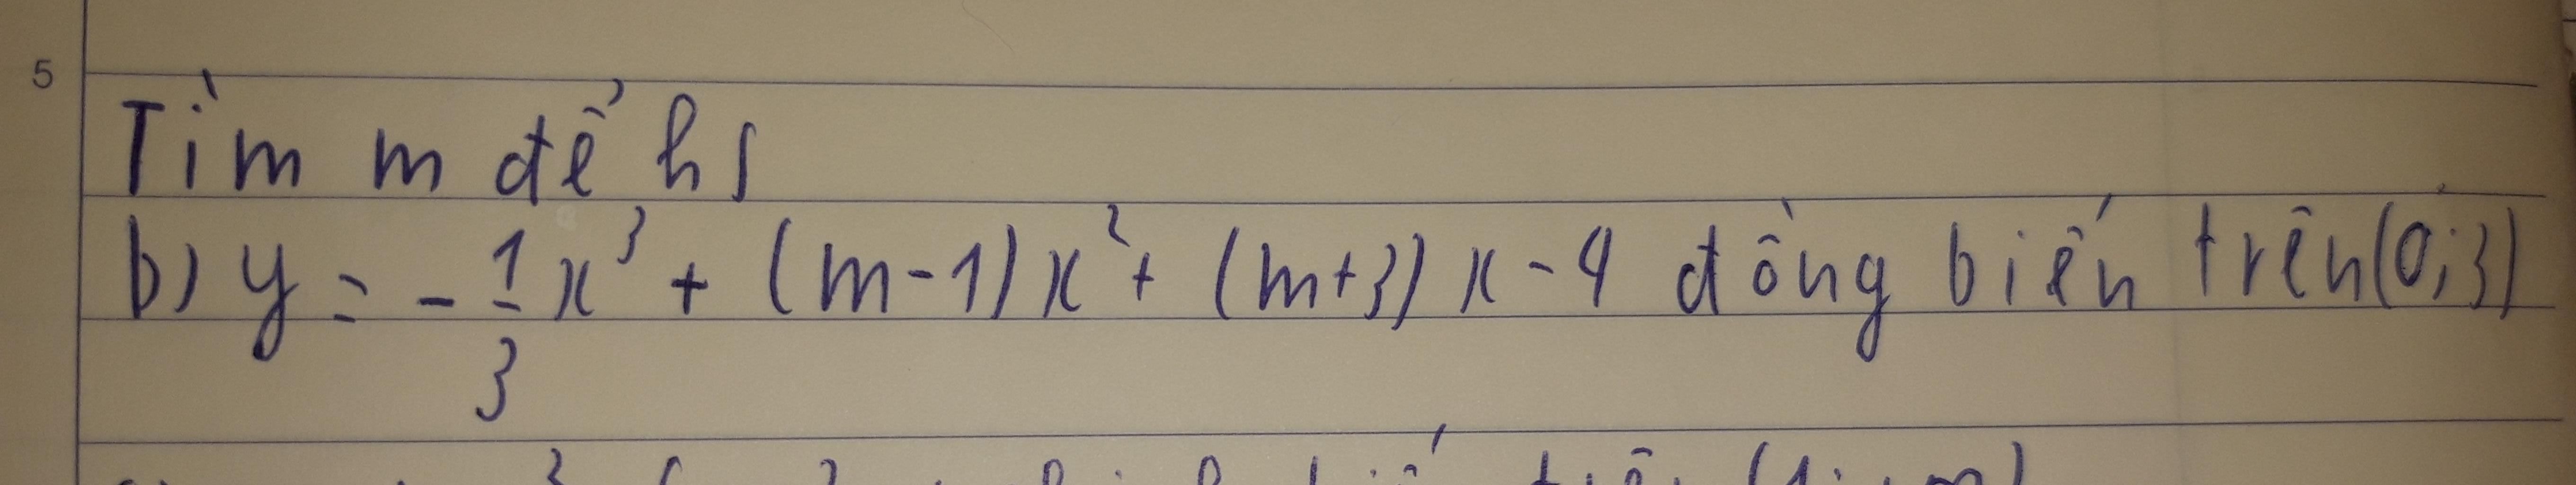 5
Tìm m để hs
b) y = -1/3 x³ + (m-1)x² + (m+3)x - 4 đồng biến trên (0;3)